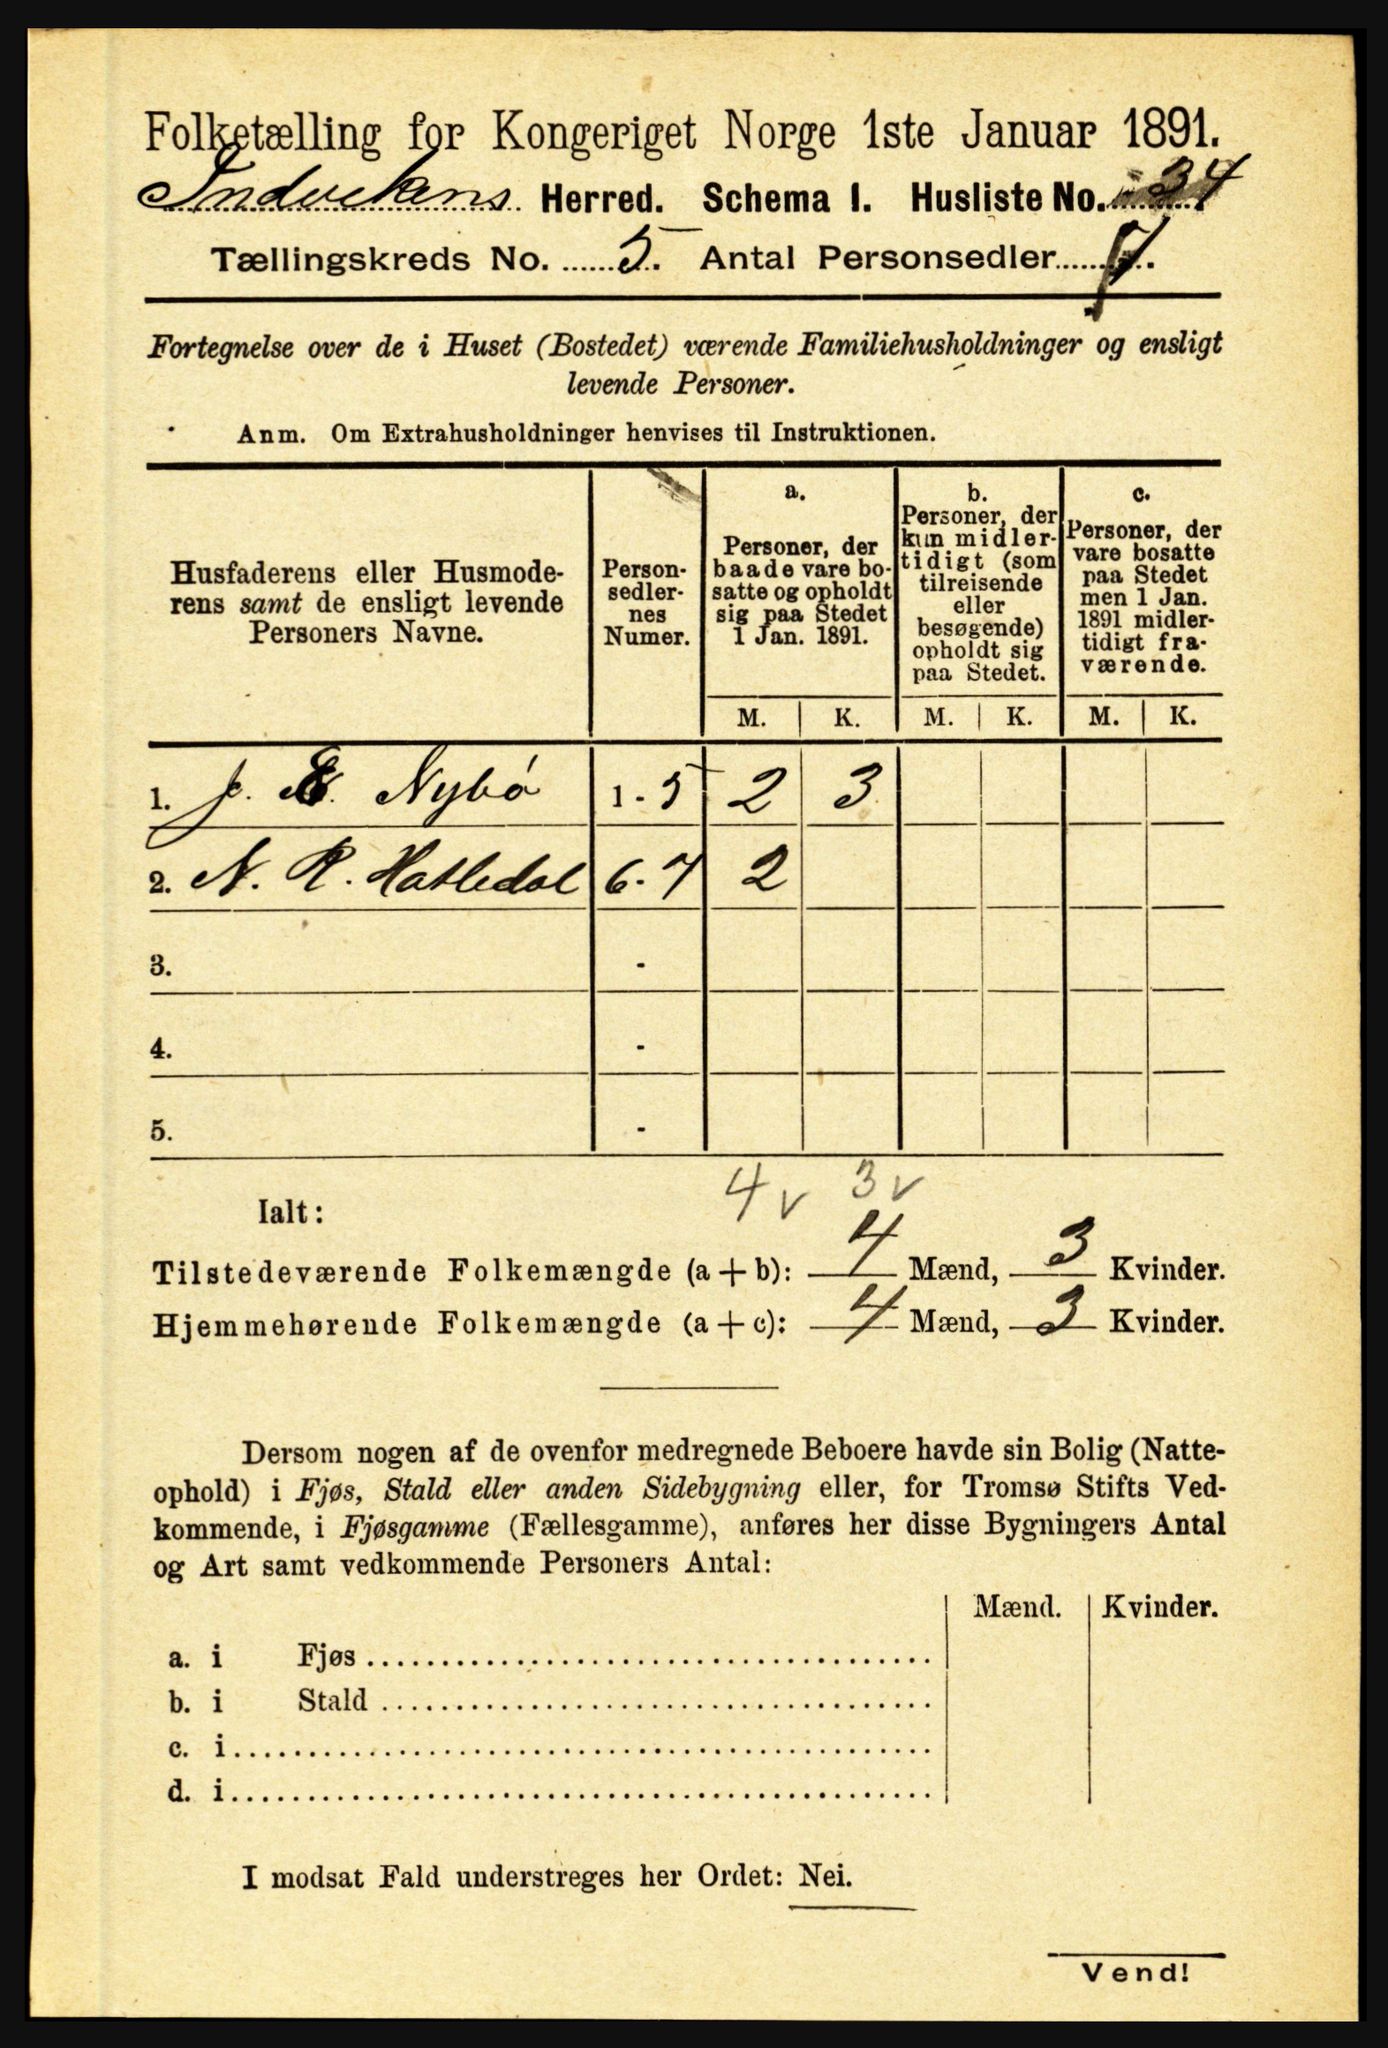 Folketælling for Kongeriget Norge 1ste Januar 1891.
Indvikens Herred. Schema I. Husliste No. 34
Tællingskreds No. 5. Antal Personsedler 7.
Fortegnelse over de i Huset (Bostedet) værende Familiehusholdninger og ensligt
levende Personer.
Anm. Om Extrahusholdninger henvises til Instruktionen.
Husfaderens eller Husmode-
rens samt de ensligt levende
Personers Navne.
Person-
sedler-
nes
Numer.
a.
Personer, der
baade vare bo-
satte og opholdt
sig paa Stedet
1 Jan. 1891.
b.
Personer, der
kun midler-
tidigt (som
tilreisende
eller
besøgende)
opholdt sig
paa Stedet.
c.
Personer, der
vare bosatte
paa Stedet
men 1 Jan.
1891 midler-
tidigt fra-
værende.
M. K. M. K. M. K.
1. J. E. Nybø 1 - 5 2 3
2. N. R. Hatledal 6 - 7 2
3. -
4. -
5. -
4 v 3 v
Ialt:
Tilstedeværende Folkemængde (a+b): 4 Mænd, 3 Kvinder.
Hjemmehørende Folkemængde (a+c): 4 Mænd, 3 Kvinder.
Dersom nogen af de ovenfor medregnede Beboere havde sin Bolig (Natte-
ophold) i Fjøs, Stald eller anden Sidebygning eller, for Tromsø Stifts Ved-
kommende, i Fjøsgamme (Fællesgamme), anføres her disse Bygningers Antal
og Art samt vedkommende Personers Antal:
Mænd. Kvinder.
a. i Fjøs
b. i Stald
c. i
d. i
I modsat Fald understreges her Ordet: Nei.
Vend!